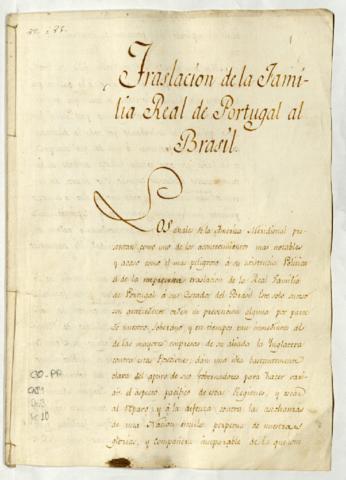 Traslacion de la Fami-
lia Real de Portugal al
Brasil.
Los anales de la America Meridional pre-
sentan como uno de los acontecimientos mas notables
y acaso como el mas peligroso á su existencia Politica
el de la imprevista traslacion de la Real Familia
de Portugal á sus Estados del Brasil. Este solo suceso
sin anteceder orden de prevencion alguna por parte
de nuestro Soberano, y en tiempos tan inmediatos al
de las mayores empresas de su aliada la Inglaterra
contra estas Posesiones, dan una idea bastantemente
clara del apuro de sus Gobernadores para hacer va-
riar el aspecto pacifico de estas Regiones, y
al reparo, y á la defensa contra las
de una Nacion emula perpetua de nuestras
glorias, y compañera inseparable de la que con
CO-PR